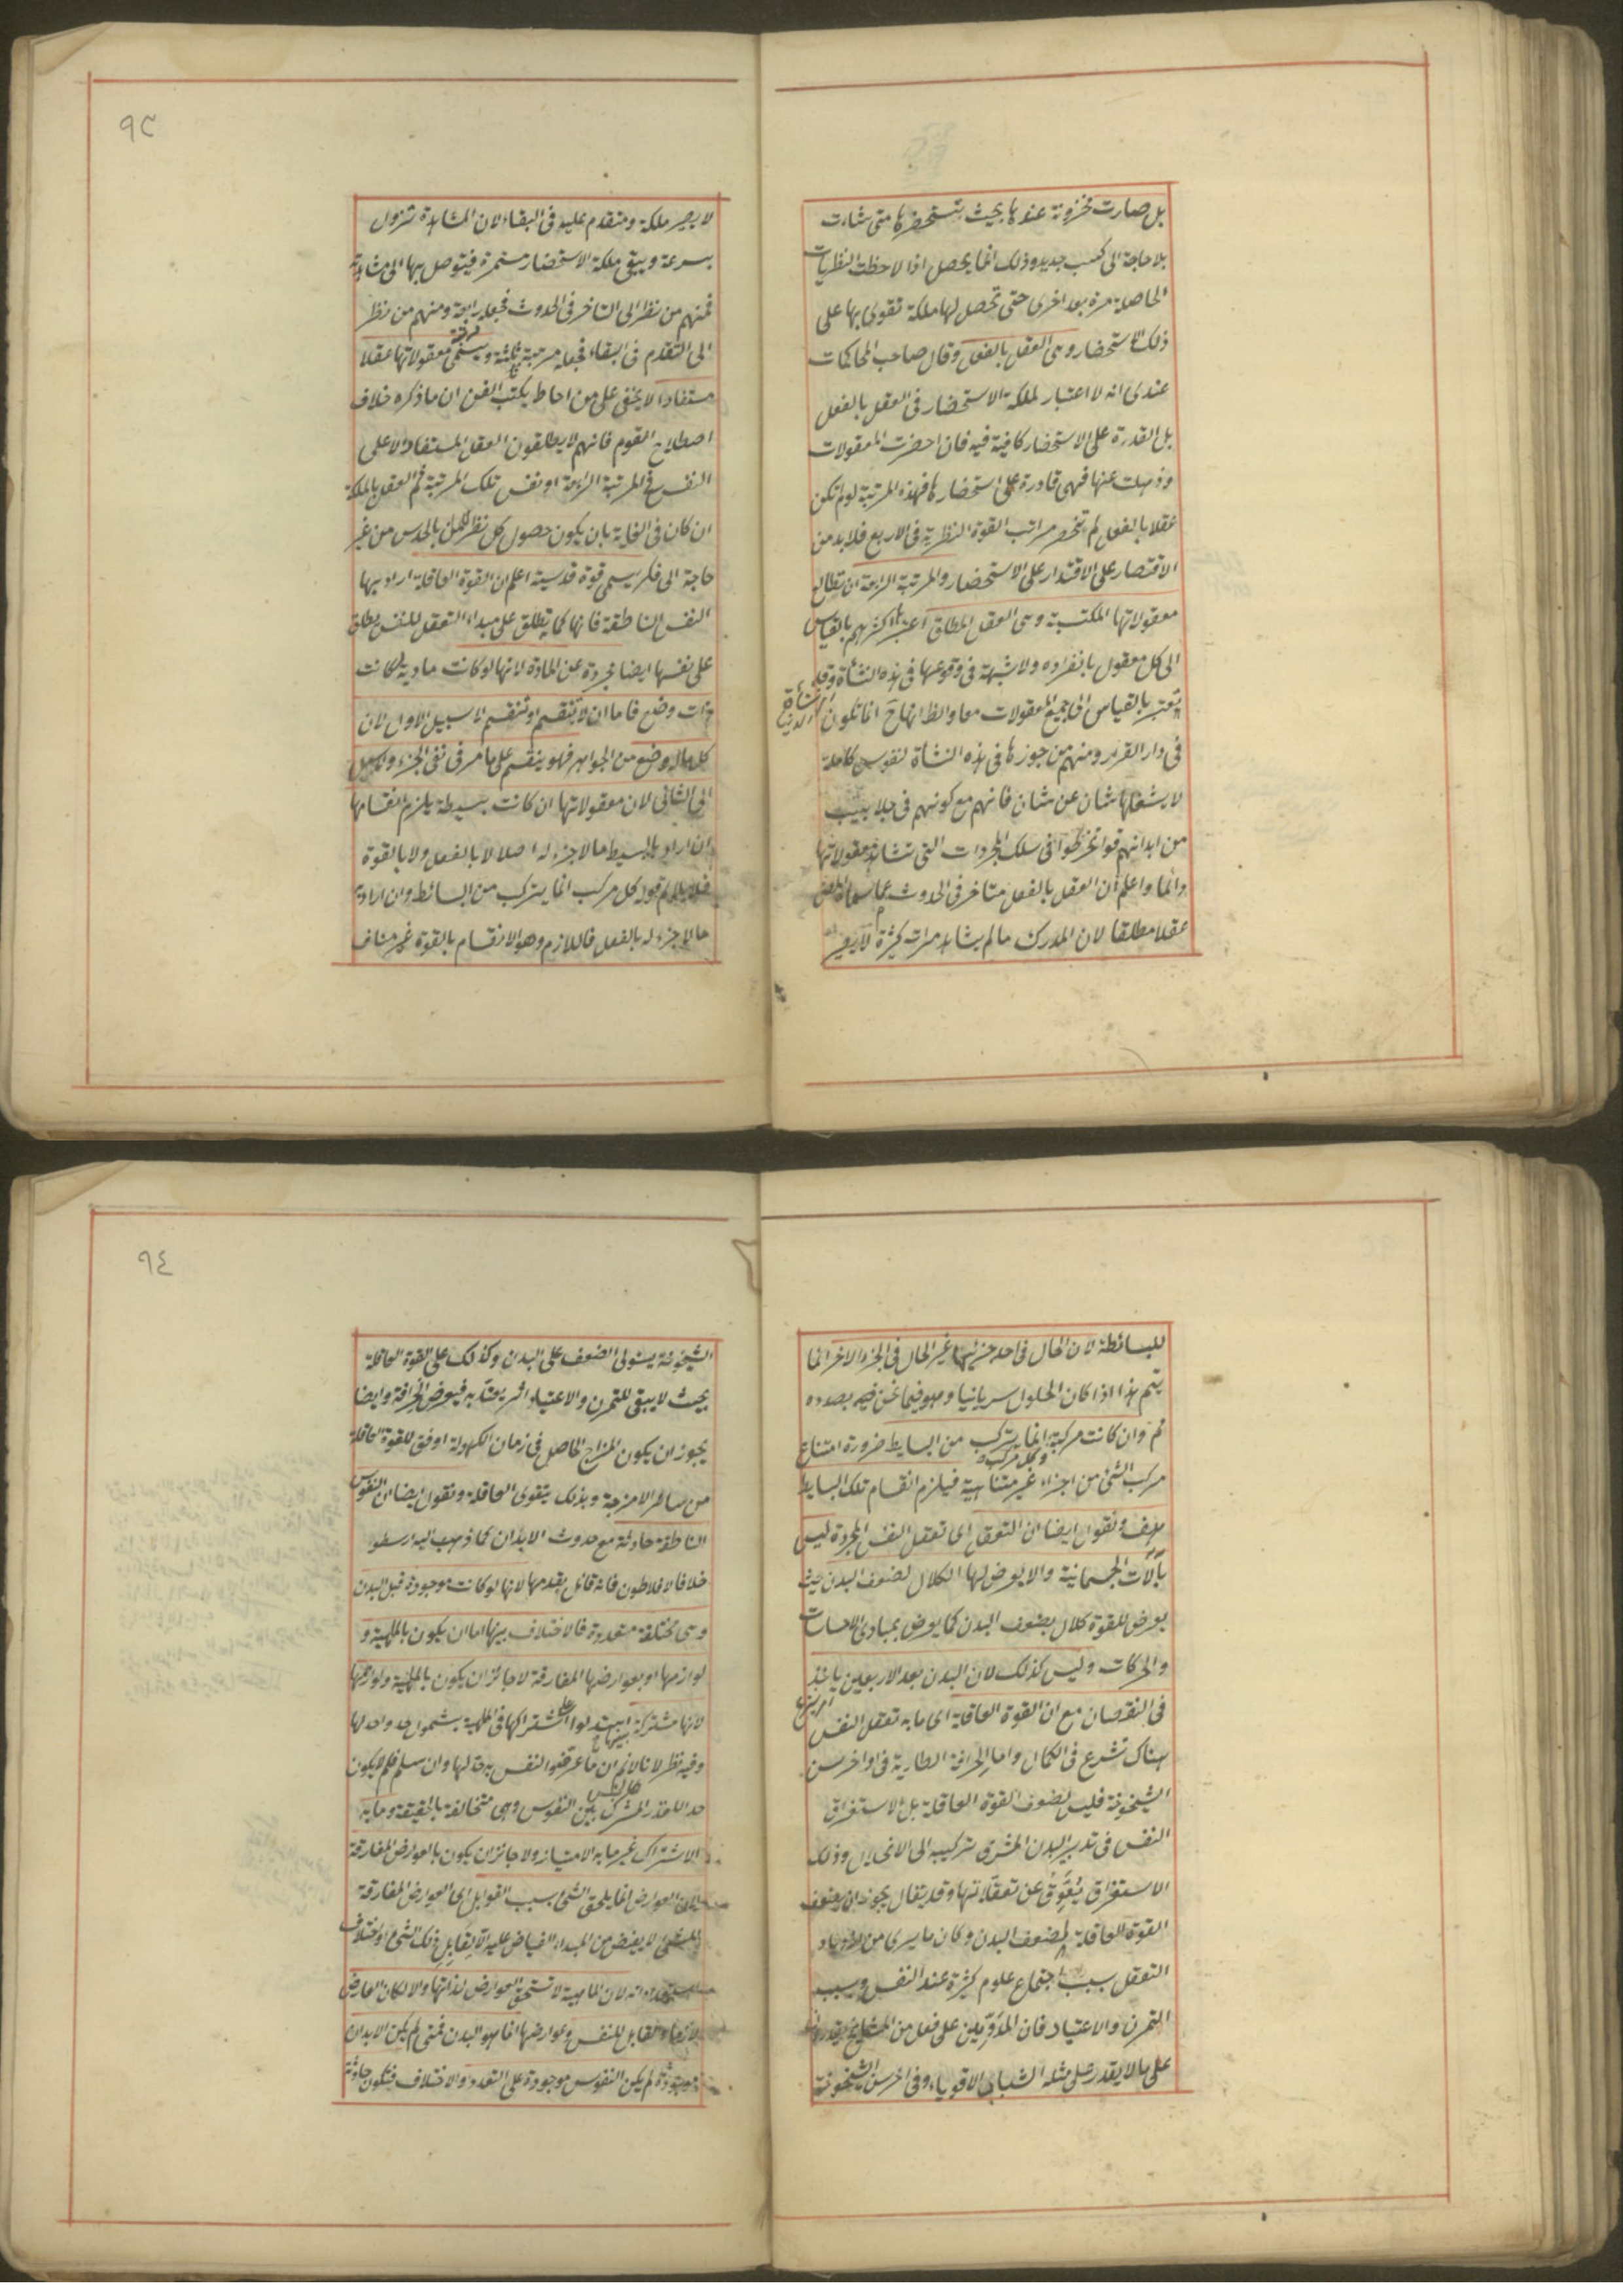 بل صارت مخزونة عندها بحيث تستحضرها متى شاءت
بلا حاجة الى كسب جديد وذلك انما يحصل اذا لاحظت النظريات
الحاصلة مرة بعد اخرى حتى تحصل لها ملكة تقوى بها على
ذلك الاستحضار وهى العقل بالفعل وقال صاحب المحاكمات
عندى انه لا اعتبار لملكة الاستحضار فى العقل بالفعل
بل القدرة على الاستحضار كافية فيه فان احضرت المعقولات
وذهلت عنها فهى قادرة على استحضارها فهذه المرتبة لو لم تكن
عقلا بالفعل لم تنحصر مراتب القوة النظرية فى الاربع فلابد من
الاقتصار على الاقتدار على الاستحضار والمرتبة الرابعة ان تطالع
معقولاتها المكتسبة وهى العقل المطلق اعتبرها اكثرهم بالقياس
الى كل معقول بانفراده ولا شبهة فى وقوعها فى هذه النشأة وقد
يعتبر بالقياس الى جميع المعقولات معا والظ انها ح انما تكون
فى دار القرار ومنهم من جوزها فى هذه النشاة لنفوس كاملة
لا يشغلها شان عن شان فانهم مع كونهم فى جلابيب
من ابدانهم قد انخرطوا فى سلك المجردات التى تشاهد معقولاتها
دائما واعلم ان العقل بالفعل متاخر فى الحدوث عما سماه المص
عقلا مطلقا لان المدرك ما لم يشاهد مرات كثيرة لا يصير
٩٣
لا يصير ملكة ومتقدم عليه فى البقاء لان المشاهدة تزول
بسرعة ويبقى ملكة الاستحضار مستمرة فيتوصل بها الى مشاهدته
فمنهم من نظر الى التاخر فى الحدوث فجعله رابعة ومنهم من نظر
الى التقدم فى البقاء فجعله مرتبة ثالثة ويسمى معقولاتها عقلا
مستفادا لا يخفى على من احاط بكتب الفن ان ما ذكره خلاف
اصطلاح القوم فانهم لا يطلقون العقل المستفاد الا على
النفس فى المرتبة الرابعة او نفس تلك المرتبة ثم العقل بالملكة
ان كان فى الغاية بان يكون حصول كل نظرى بالحدس من غير
حاجة الى فكر يسمى قوة قدسية اعلم ان القوة العاقلة اراد بها
النفس الناطقة فانها كما تطلق على مبداء التعقل للنفس يطلق
على نفسها ايضا مجردة عن المادة لانها لو كانت مادية لكانت
ذات وضع فاما ان لا تنقسم او تنقسم لا سبيل الى الاول لان
كل ماله وضع من الجواهر فهو ينقسم على ما مر فى نفى الجزء ولا سبيل
الى الثانى لان معقولاتها ان كانت بسيطة يلزم انقسامها
ان اراد بالبسيط ما لا جزء له اصلا لا بالفعل ولا بالقوة
فلا يلايم قوله كل مركب انما يتركب من البسائط وان اراد به
ما لا جزء له بالفعل فاللازم وهو الانقسام بالقوة غير مناف
للبسائطة لان الحال فى احد جزئيها غير الحال فى الجزء الاخر انما
يتم هذا اذا كان الحلول سريانيا وهو فيما نحن فيه بصدده
ثم وان كانت مركبة وكل مركب انما يتركب من البسايط ضرورة امتناع
مركب الشئ من اجزاء غير متناهية فيلزم انقسام تلك البسايط
هف ونقول ايضا ان التعقل اى تعقل النفس المجردة ليس
بآلات الجسمانية والا يعرض لها الكلال لضعف البدن حيث
يعرض للقوة كلال بضعف البدن كما يعرض بمبادى الاحساسات
والحركات وليس كذلك لان البدن بعد الاربعين ياخذ
فى النقصان مع ان القوة العاقلة اى ما به تعقل النفس
هناك تشرع فى الكمال واما الخرافة الطارية فى اواخر سن
الشيخوخة فليس لضعف القوة العاقلة بل لاستغراق
النفس فى تدبير البدن المشرف تركيبه الى الانحلال وذلك
الاستغراق يعوق عن تعقلاتها وقد يقال يجوز ان يضعف
القوة العاقلة لضعف البدن وكان ما يرى من ازدياد
التعقل بسبب اجتماع علوم كثيرة عند النفس وبسبب
التمرن والاعتياد فان المداومين على فعل من المشايخ يقدرون
على ما لا يقدر على مثله الشبان الاقوياء وفى اخر سن الشيخوخة
٩٤
الشيخوخة يستولى الضعف على البدن وكذلك على القوة العاقلة
بحيث لا يبقى للتمرن والاعتياد اثر يعتد به فيعرض الخرافة وايضا
يجوز ان يكون المزاج الحاصل فى زمان الكهولة اوفق للقوة العاقلة
من سائر الامزجة وبذلك يتقوى العاقلة ونقول ايضا ان النفوس
الناطقة حادثة مع حدوث الابدان كما ذهب اليه ارسطو
خلافا لافلاطون فانه قائل بقدمها لانها لو كانت موجودة قبل البدن
وهى مختلفة متعددة فالاختلاف بينها اما ان يكون بالمهية و
لوازمها او بعوارضها المفارقة لا جائز ان يكون بالمهية ولوازمها
لانها مشتركة بينها استدلوا على اشتراكها فى المهية بشمول حد واحد لها
وفيه نظر لانا لا نم ان ما عرفوا النفس به حد لها وان سلم فلم لا يكون
حدا للقدر المشترك بين النفوس وهى متخالفة بالحقيقة وما به
الاشتراك غير ما به الامتياز ولا جائز ان يكون بالعوارض المفارقة
لان العوارض انما يلحق الشئ بسبب القوابل اى العوارض المفارقة
للشئ لا يفيض من المبداء الفياض عليه الا لقابل ذلك الشئ واختلاف
استعداداته لان الماهية لا تستحق العوارض لذاتها والا لكان العارض
لازما والقابل للنفس وعوارضها انما هو البدن فمتى لم يكن الابدان
موجودة لم يكن النفوس موجودة على التعدد والاختلاف فتكون حادثة